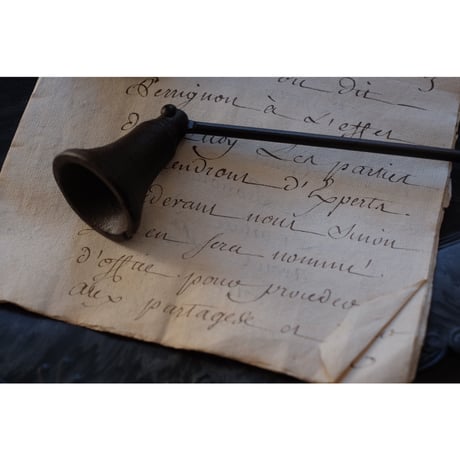 ou dit
Perrignon à L'effet
de quoy Les parties
viendront d'Experts
pardevant nous Sinon
en sera nommé
d'office pour proceder
aux partages et